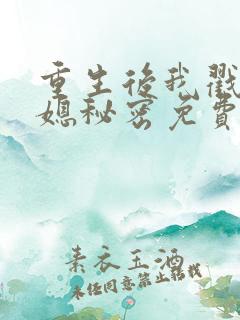 重生后我戳
媳秘密免费
素衣玉酒
未经同意禁止转载